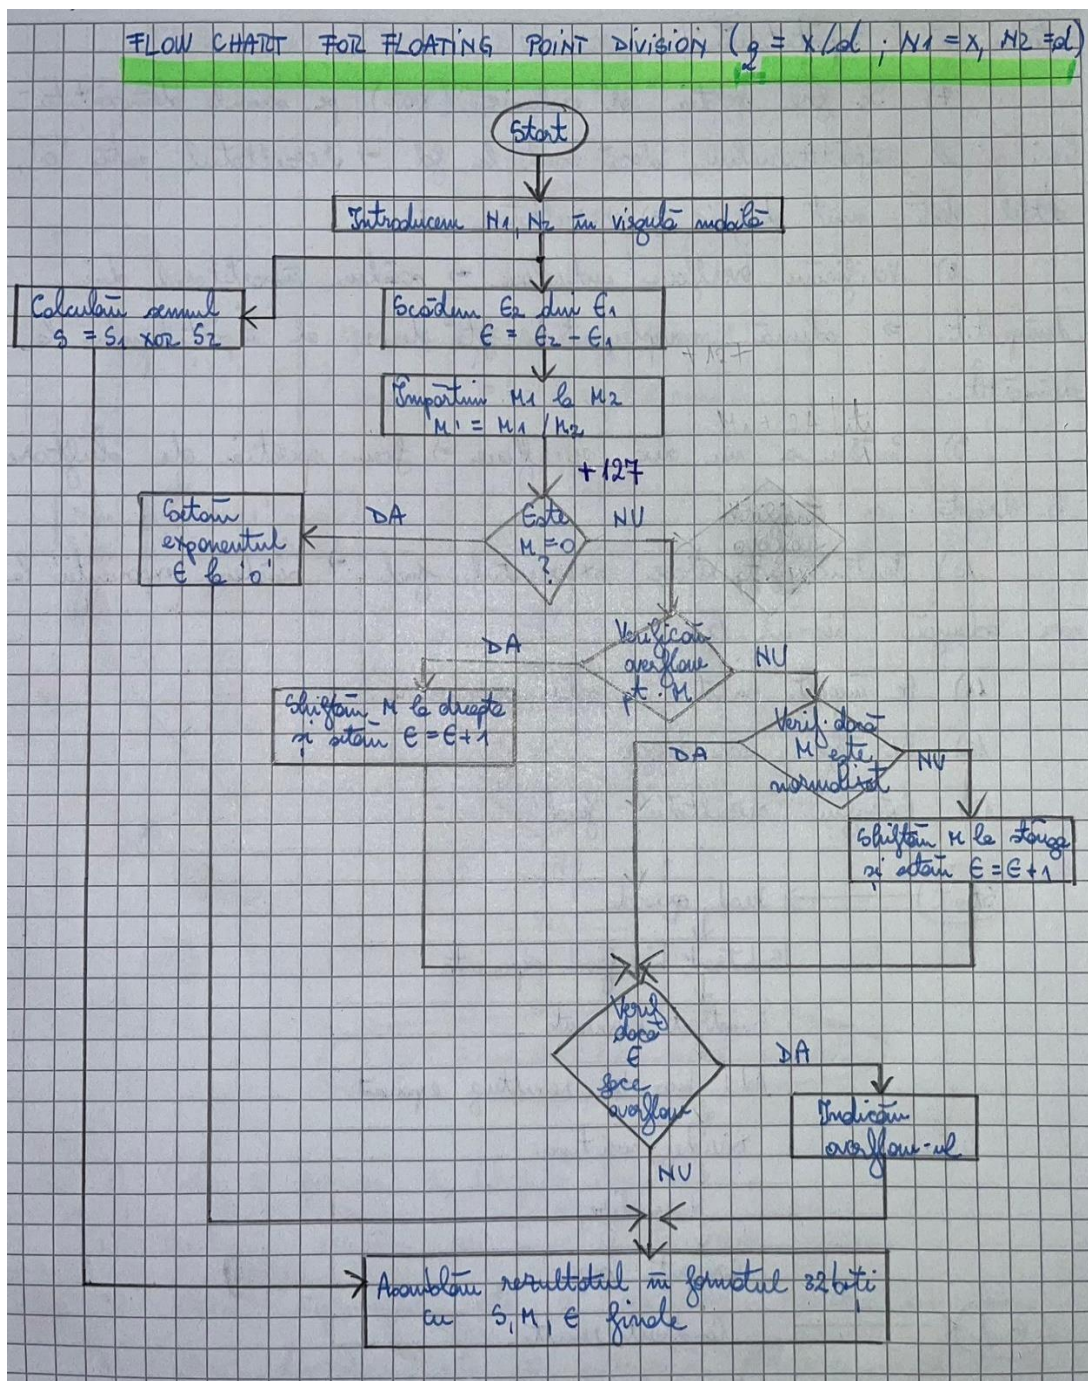 FLOW CHART FOR FLOATING POINT DIVISION (q = x/d ; N1 = x, N2 = d)
Start
Introducem N1, N2 în virgulă mobilă
Calculăm semnul
S = S1 XOR S2
Scădem E2 din E1
E = E2 - E1
Împărțim M1 la M2
M = M1 / M2
+127
Setăm
exponentul
E la '0'
DA
Este
M = 0
?
NU
DA
Verificăm
overflow
pt. M
NU
Shiftăm M la dreapta
și setăm E = E+1
DA
Verif. dacă
M este
normalizat
NU
Shiftăm M la stânga
și setăm E = E+1
Verif
dacă
E
face
overflow
DA
Indicăm
overflow-ul
NU
Asamblăm rezultatul în formatul 32 biți
cu S, M, E finale